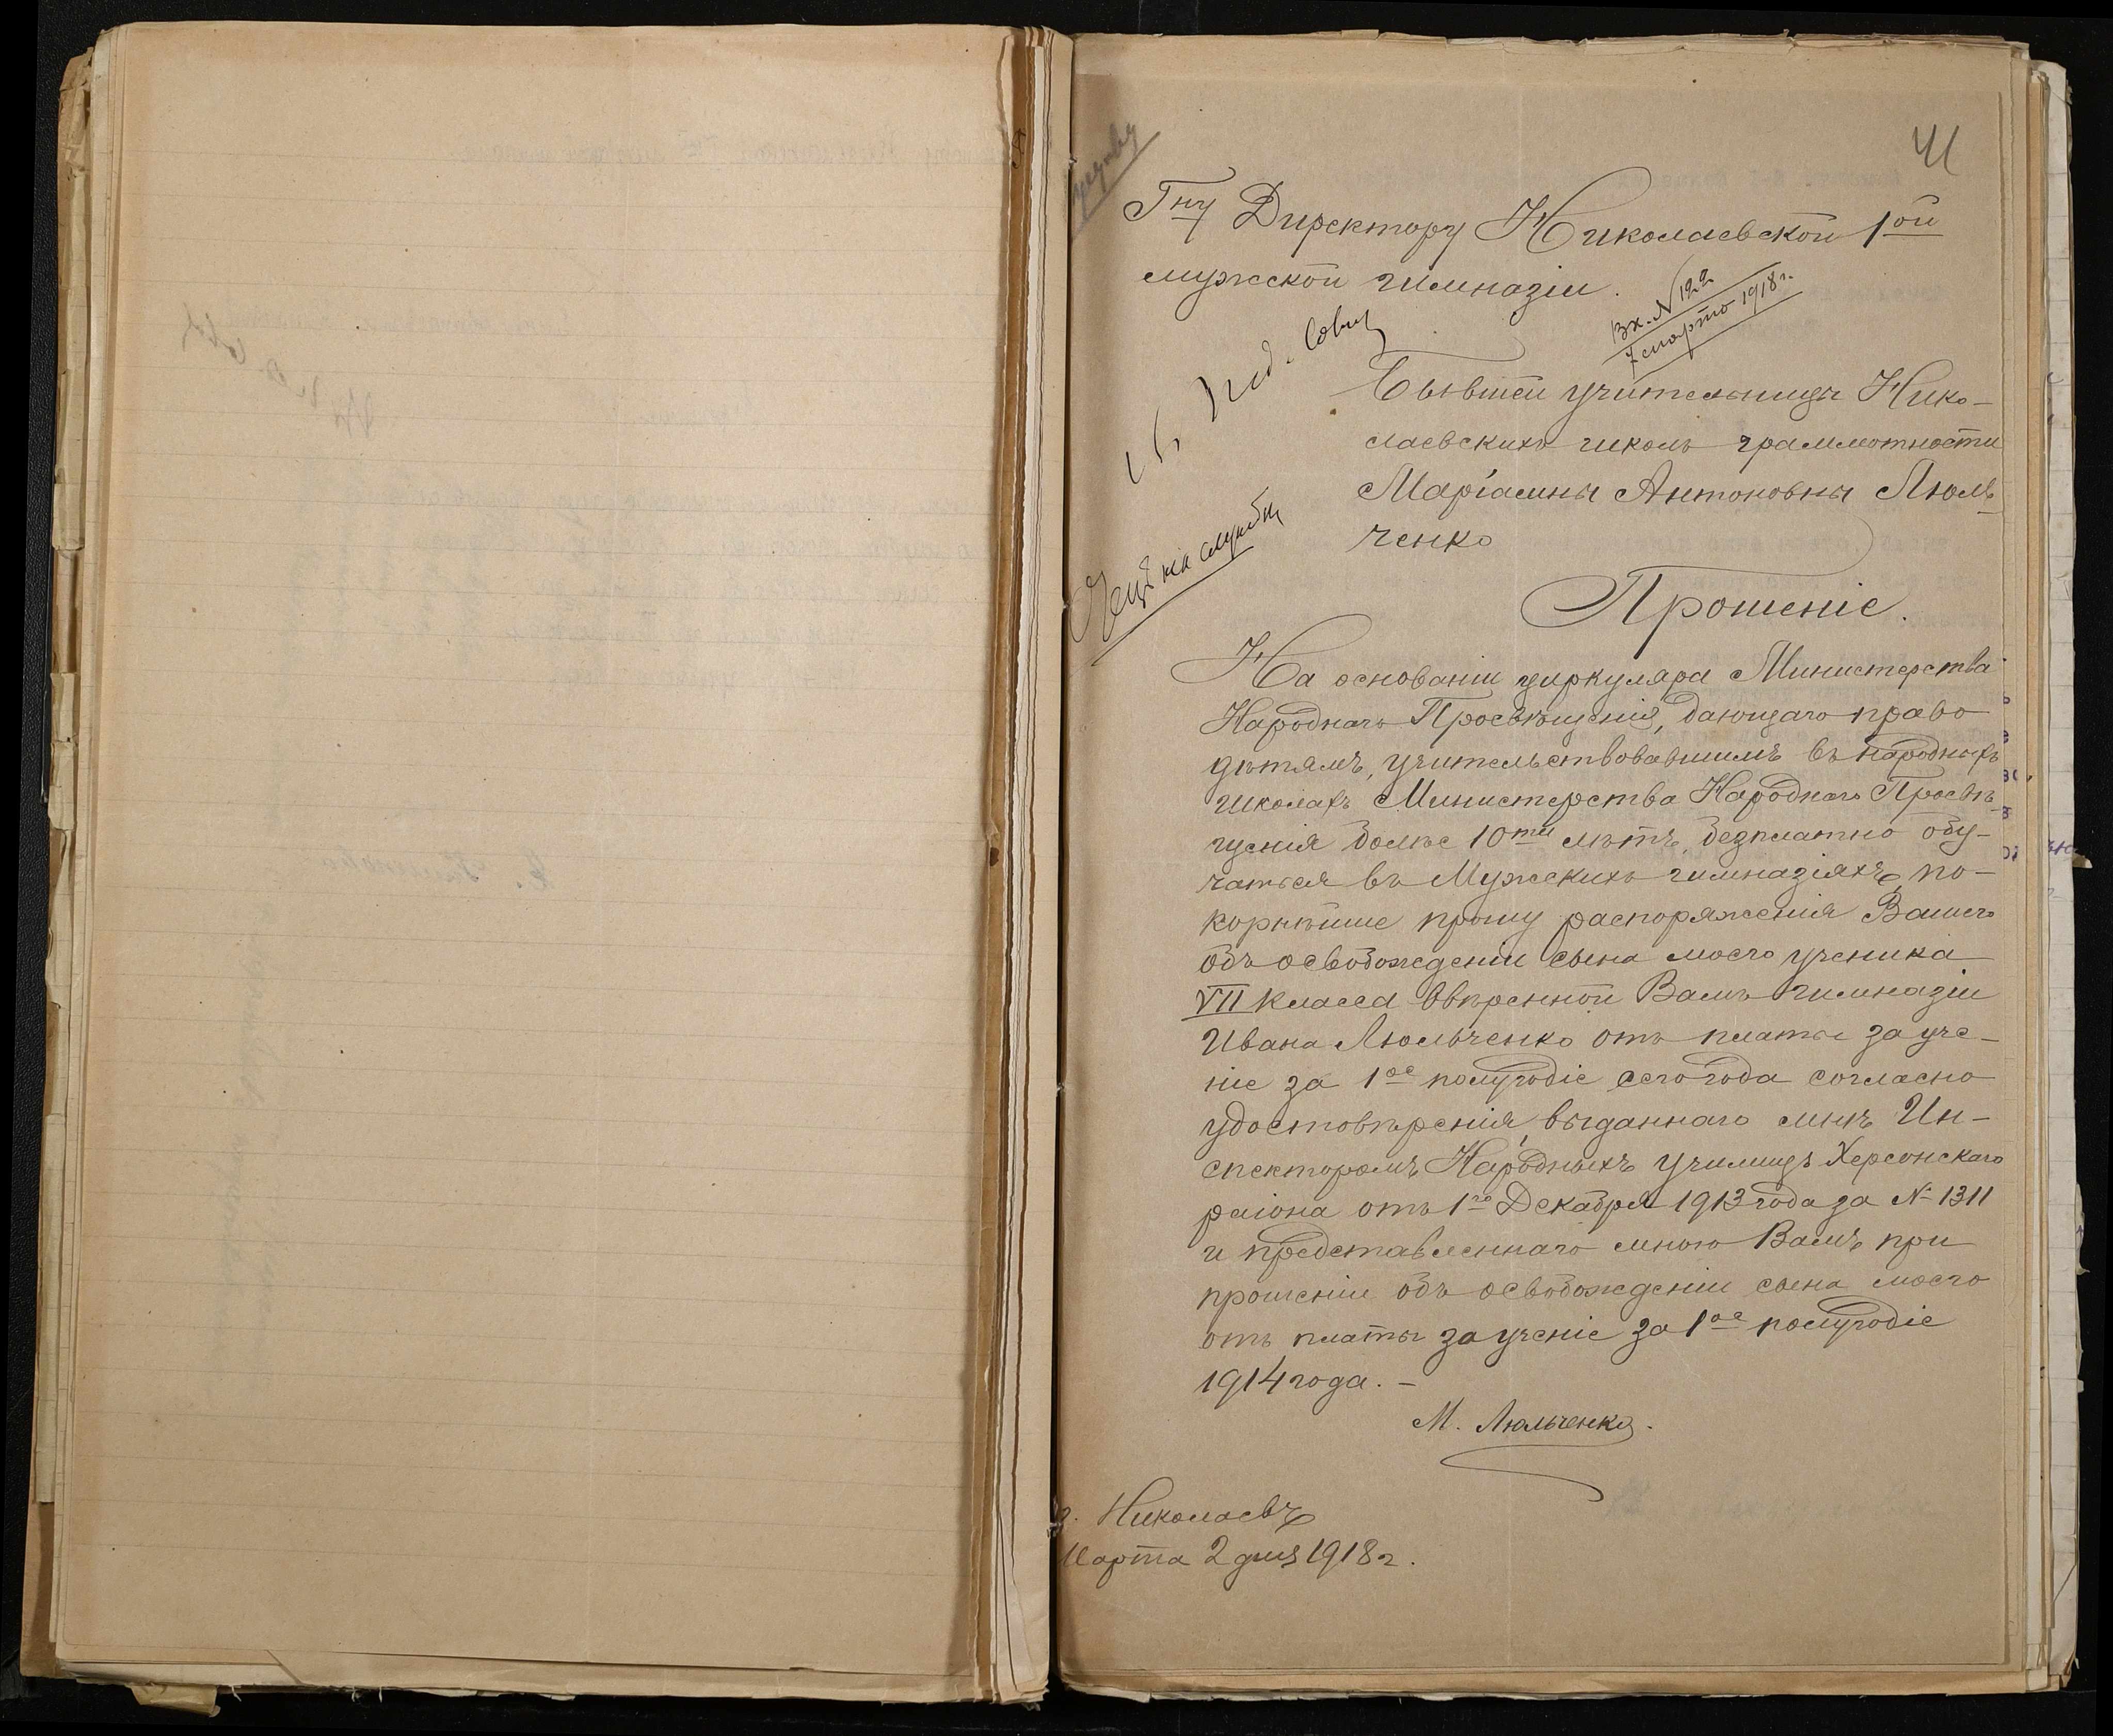 41
Гну Директору Николаевской 1ой
мужской гимназіи.
Вх. № 122
7 марта 1918 г.
Бывшей учительницы Нико-
лаевскихъ школъ граммотности
Маріамны Антоновны Люль-
ченко
Прошеніе.
На основаніи циркуляра Министерства
Народнаго Просвѣщенія, дающаго право
дѣтямъ, учительствовавшимъ въ народныхъ
школахъ Министерства Народнаго Просвѣ-
щенія болѣе 10ти лѣтъ, безплатно обу-
чаться въ Мужскихъ гимназіяхъ, по-
корнѣйше прошу распоряженія Вашего
объ освобожденіи сына моего ученика
VII класса ввѣренной Вамъ гимназіи
Ивана Люльченко отъ платы за уче-
ніе за 1ое полугодіе сего года согласно
удостовѣренія, выданнаго мнѣ Ин-
спекторомъ Народныхъ училищъ Херсонскаго
раіона отъ 1го Декабря 1913 года за № 1311
и представленнаго мною Вамъ при
прошеніи объ освобожденіи сына моего
отъ платы за ученіе за 1ое полугодіе
1914 года. –
М. Люльченко.
г. Николаевъ
Марта 2 дня 1918 г.